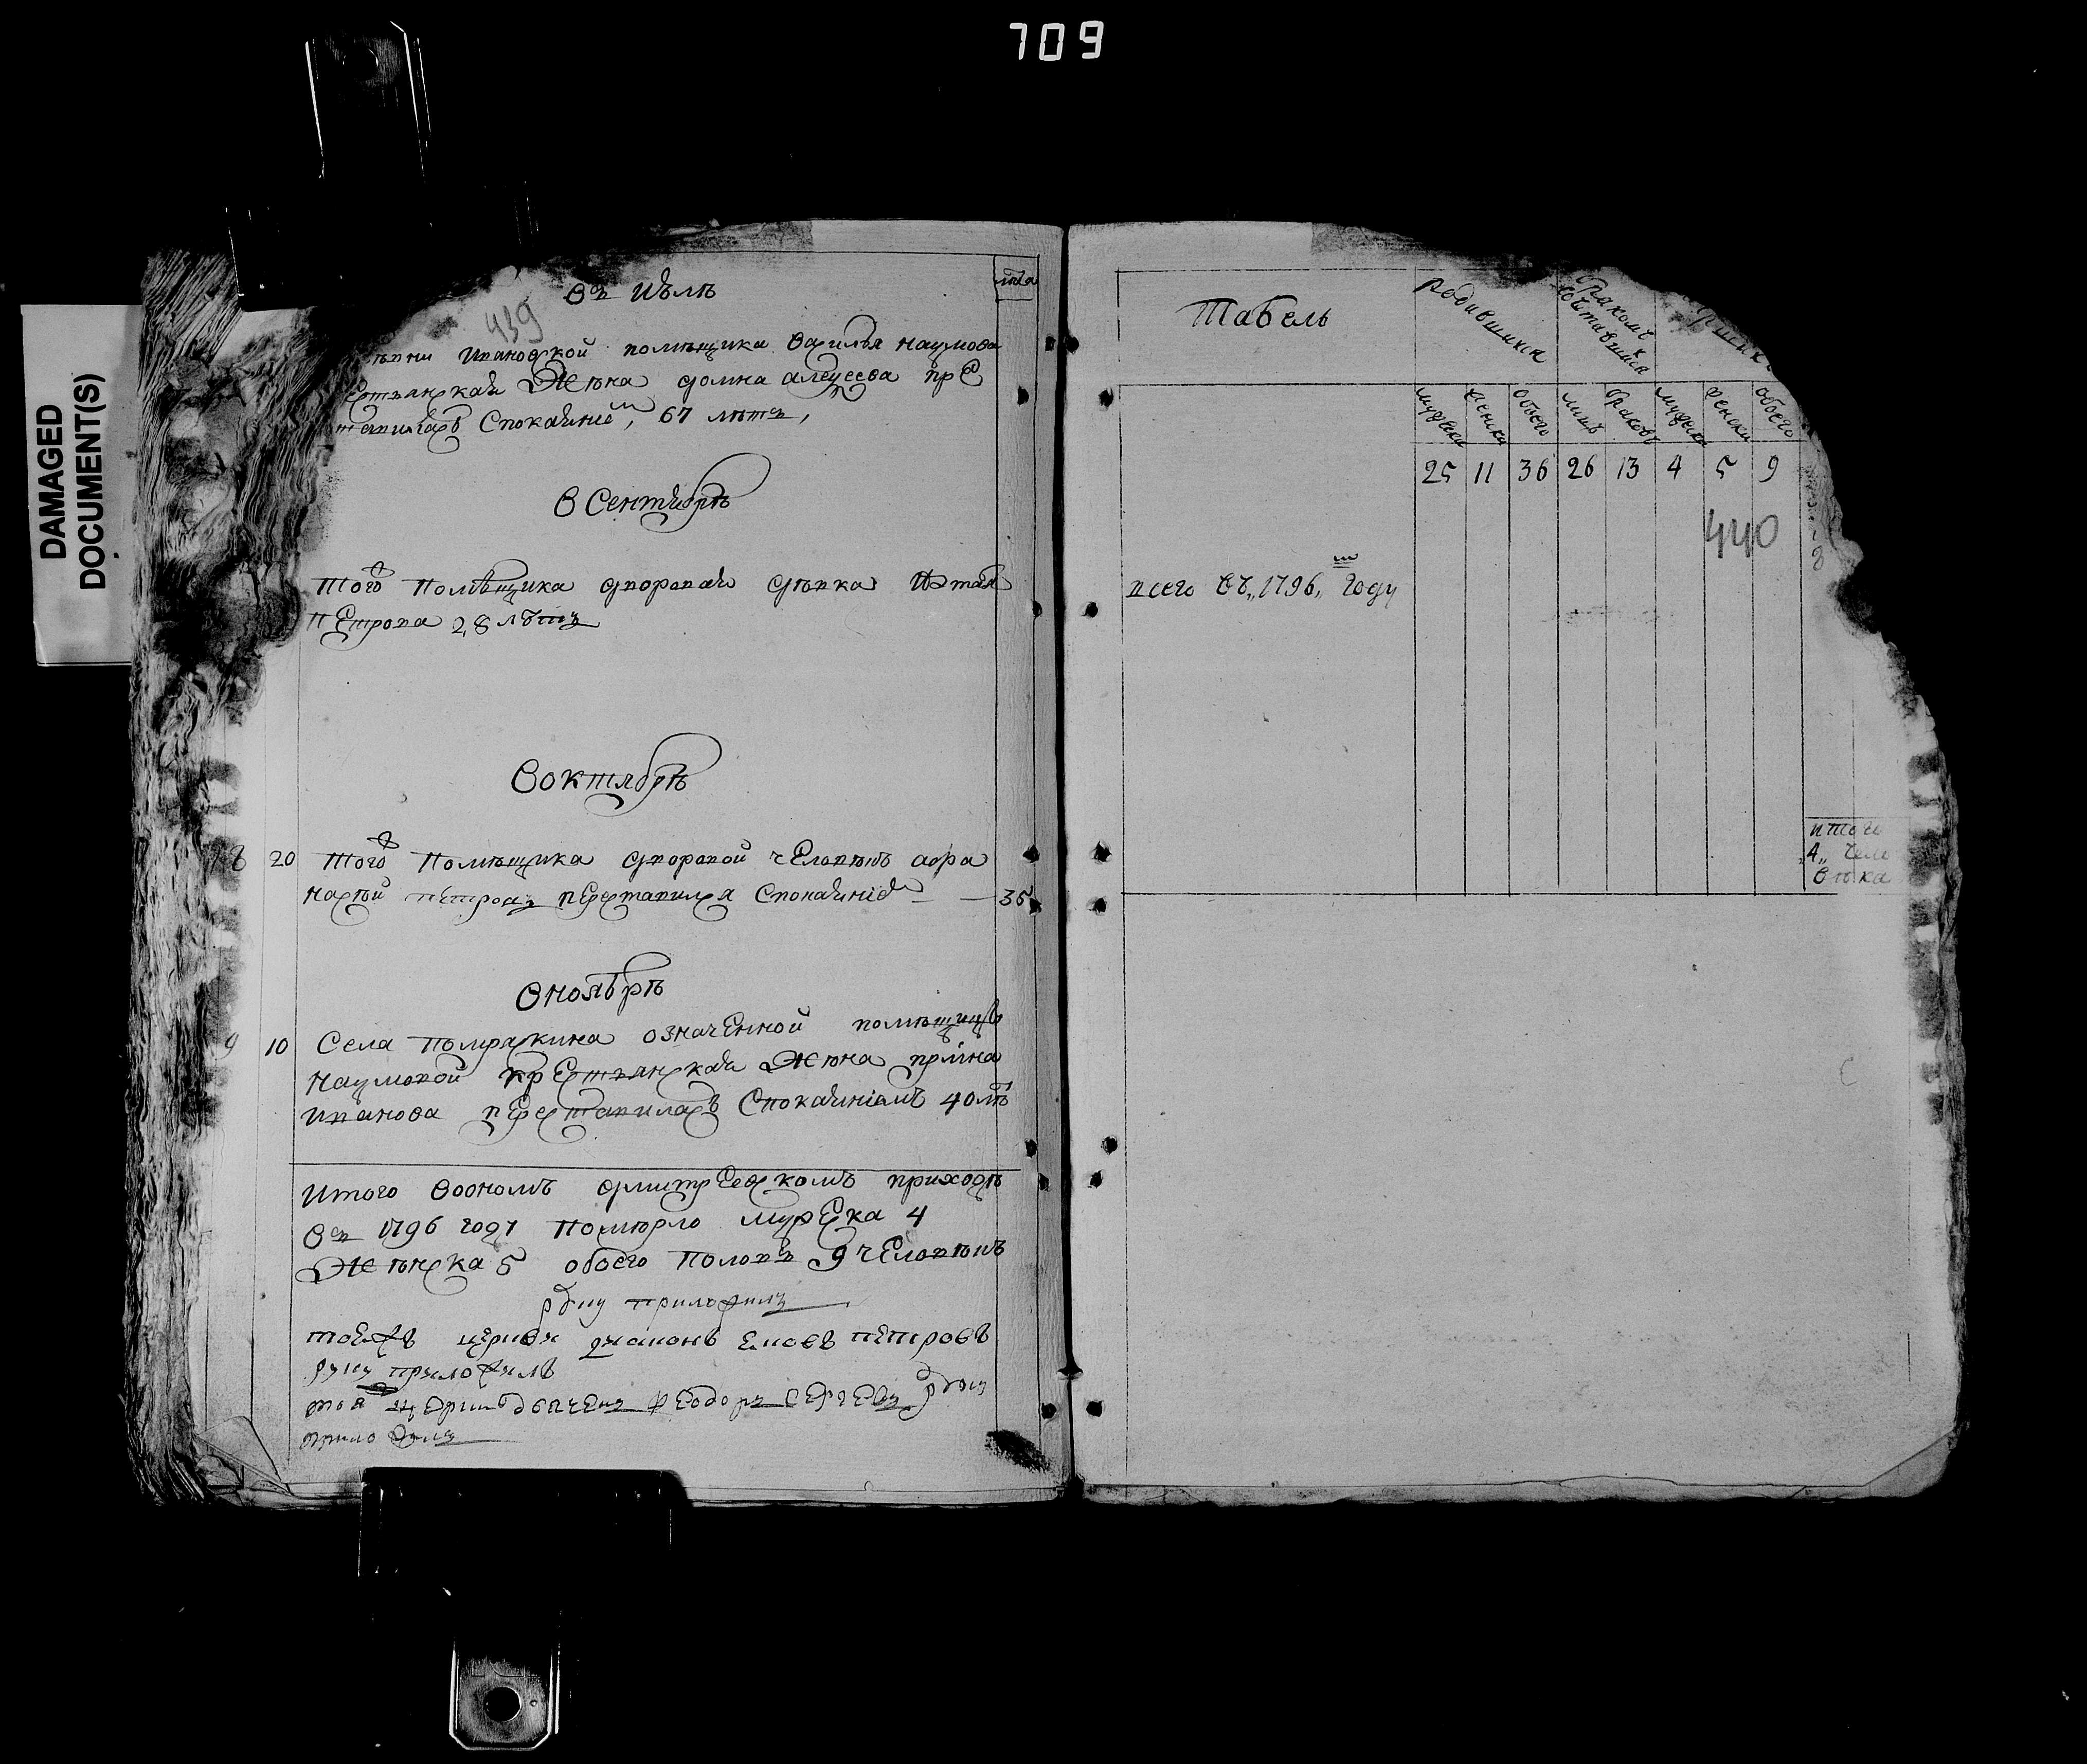 709
DAMAGED
DOCUMENT(S)
439
въ Июлѣ
лѣта
Ивановской помѣщика Василья Наумова
жена Домна
покаяниемъ, 67 лѣтъ,
В Сентябрѣ
Того ж помѣщика дворовая дѣвка
Петрова 28 лѣтъ
В октябрѣ
8 20 Того ж помѣщика дворовой человѣкъ Афа
насей Петровъ преставился с покаяниемъ 35
В ноябрѣ
9 10 Села означенной помѣщицы
Наумовой крестьянская жена Ирина
Иванова преставилась с покаяниемъ 40 лѣтъ
Итого в ономъ Дмитревскомъ приходѣ
въ 1796 году померло мужеска 4
женска 5 обоего половъ 9 человѣкъ
руку приложилъ
тоежъ церкви диаконъ Петровъ
руку приложилъ
той ж церкви Федоръ Сергеевъ руку
приложилъ
Табель
родившихся
бракомъ
сочетавшихся
мужеска
женска
обоего
лицъ
браковъ
мужеска
женска
обоего
25 11 36 26 13 4 5 9
440
всего въ „1796„ году
итого
„4„ чело
вѣка